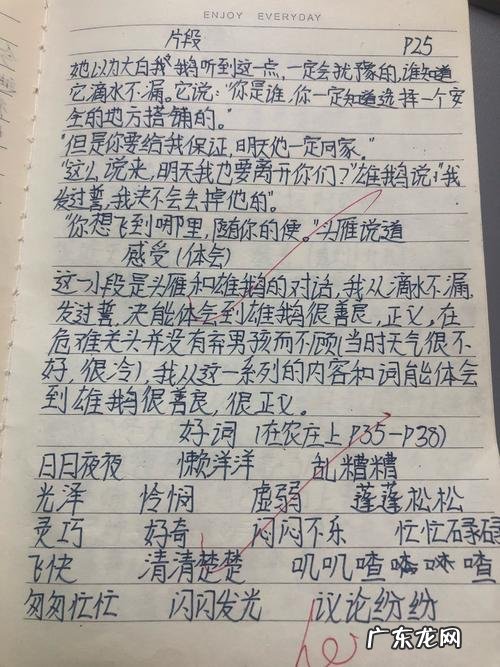 ENJOY EVERYDAY
片段 P25
她以为大白我鹅听到这一点,一定会犹豫的,谁知道
它滴水不漏。它说:"你是谁,你一定知道选择一个安
全的地方搭铺的。"
"但是你要给我保证,明天他一定回家。"
"这么说来,明天我也要离开你们?"雄鹅说:"我
发过誓,我决不会丢掉他的"。
"你想飞到哪里,随你的便。"头雁说道
感受(体会)
这一小段是头雁和雄鹅的对话,我从滴水不漏,
发过誓,决能体会到雄鹅很善良,正义,在
危难关头并没有弃男孩而不顾(当时天气很不
好,很冷),我从这一系列的内容和词能体会
到雄鹅很善良,很正义。
好词 (在农庄上P35-P38)
日日夜夜 懒洋洋 乱糟糟
光泽 怜悯 虚弱 蓬蓬松松
灵巧 好奇 闷闷不乐 忙忙碌碌
飞快 清清楚楚 叽叽喳喳
匆匆忙忙 闪闪发光 议论纷纷
广东龙网